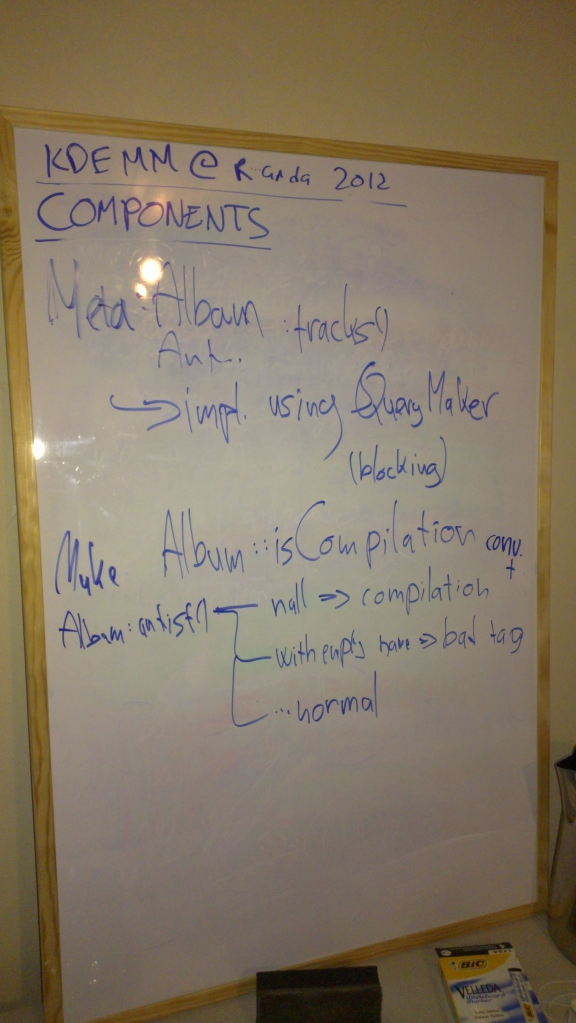 KDE MM @ Randa 2012
COMPONENTS
Meta::Album ::tracks()
→ impl. using QueryMaker
(blocking)
Make Album::isCompilation conv.
+
Album::artist() null => compilation
with empty name => bad tag
...normal
BIC
VELLEDA